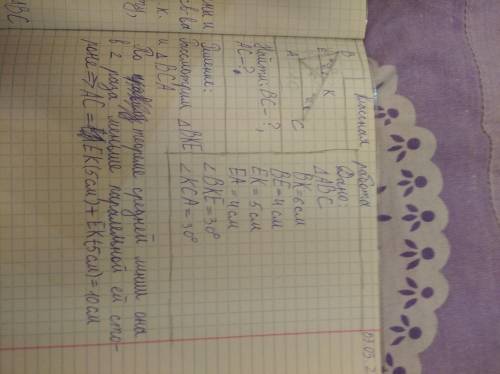 07.05.2
Классная работа
Дано:
△ABC
BK=6см
BE=4см
EK=5см
EA=4см
∠BKE=30°
∠KCA=30°
B
E
K
A
C
Найти: BC-?,
AC-?
Решение:
Рассмотрим △BKE
и △BCA
По теореме средней линии она
в 2 раза меньше параллельной ей сто-
роне ⇒ AC = EK(5см)+EK(5см)=10см
ABC